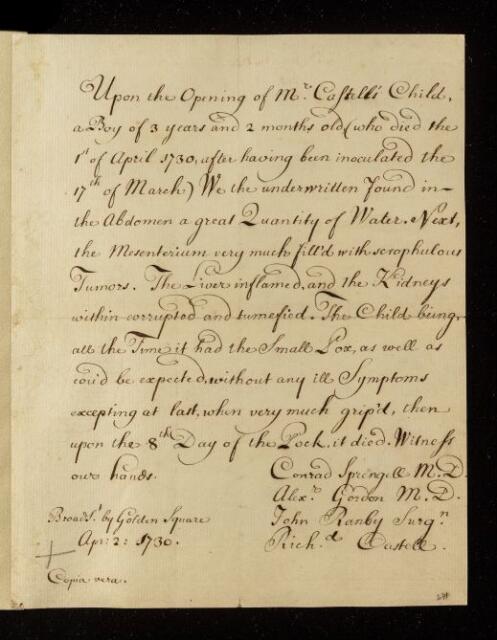 Upon the Opening of Mr. Castell's Child,
a Boy of 3 years and 2 months old (who died the
1st of April 1730, after having been inoculated the
17th of March) We the underwritten found in
the Abdomen a great Quantity of Water. Next,
the Mesenterium very much fill'd with scrophulous
Tumors. The Liver inflamed, and the Kidneys
within corrupted and tumefied. The Child being
all the Time it had the Small Pox, as well as
cou'd be expected, without any ill Symptoms
excepting at last, when very much grip'd, then
upon the 8th Day of the Pock, it died. Witness
our hands.
Conrad Sprengell M.D.
Alexr. Gordon M.D.
John Ranby Surgn
Richd. Castell.
Broads. by Golden Square
Apr: 2: 1730.
Copia vera.